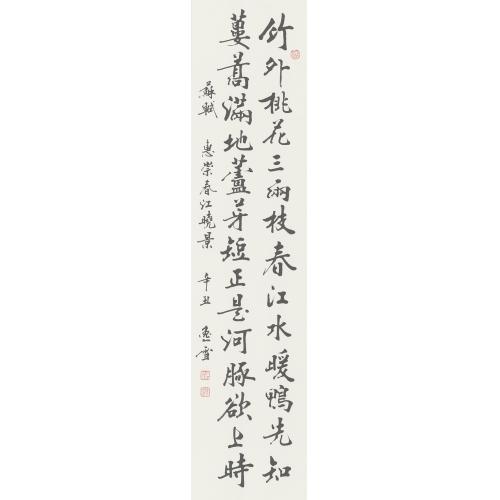 竹外桃花三兩枝春江水暖鴨先知
蔞蒿滿地蘆芽短正是河豚欲上時
蘇軾 惠崇春江曉景 辛丑